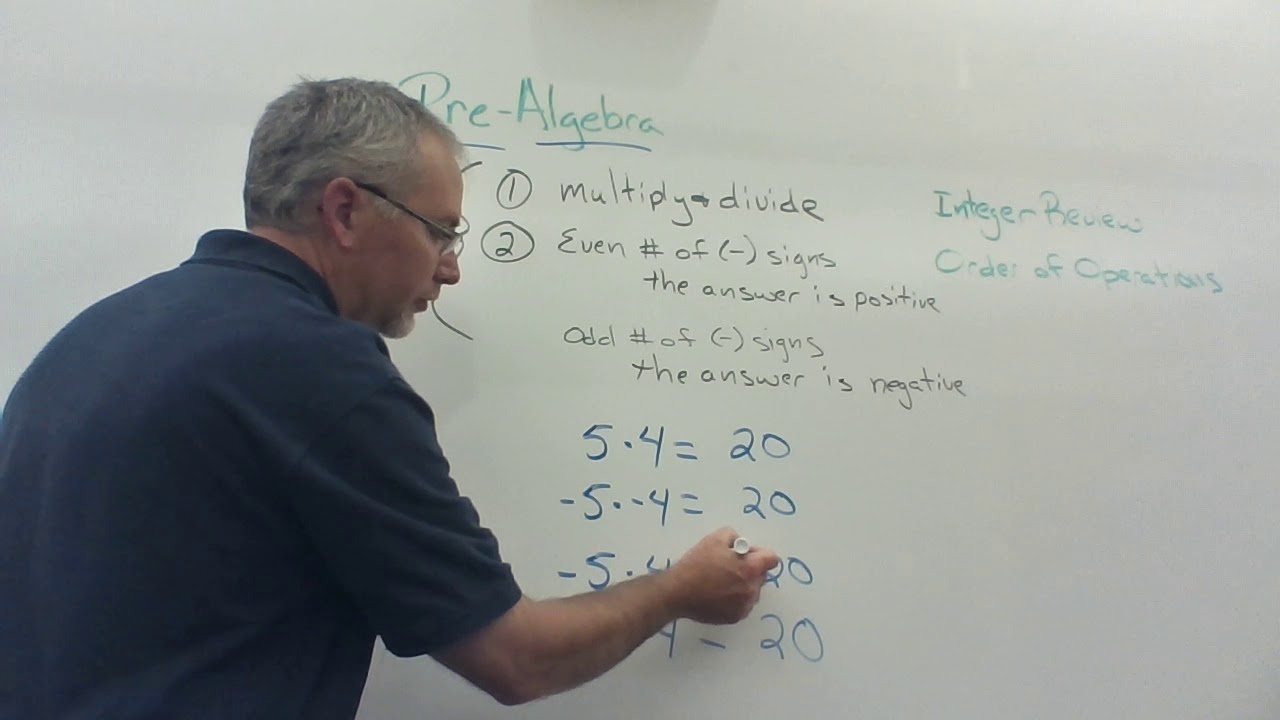 Pre-Algebra
① multiply + divide
② Even # of (-) signs
the answer is positive
Odd # of (-) signs
the answer is negative
5 · 4 = 20
-5 · -4 = 20
-5 · 4 20
4 - 20
Integer Review
Order of Operations